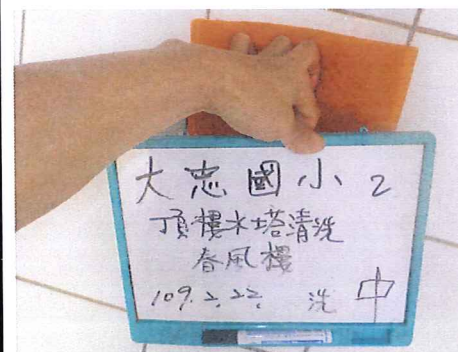 大忠國小 2
頂樓水塔清洗
春風樓
109.2.22. 洗 中